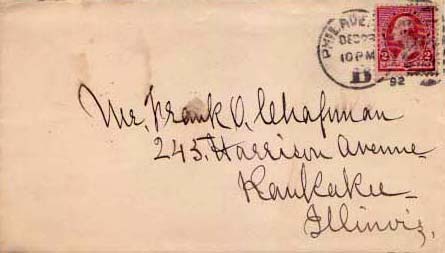 PHILADE
DEC 23
10 PM
92
2 2
Mr. Frank O. Chapman
245 Harrison Avenue
Kankakee
Illinois.